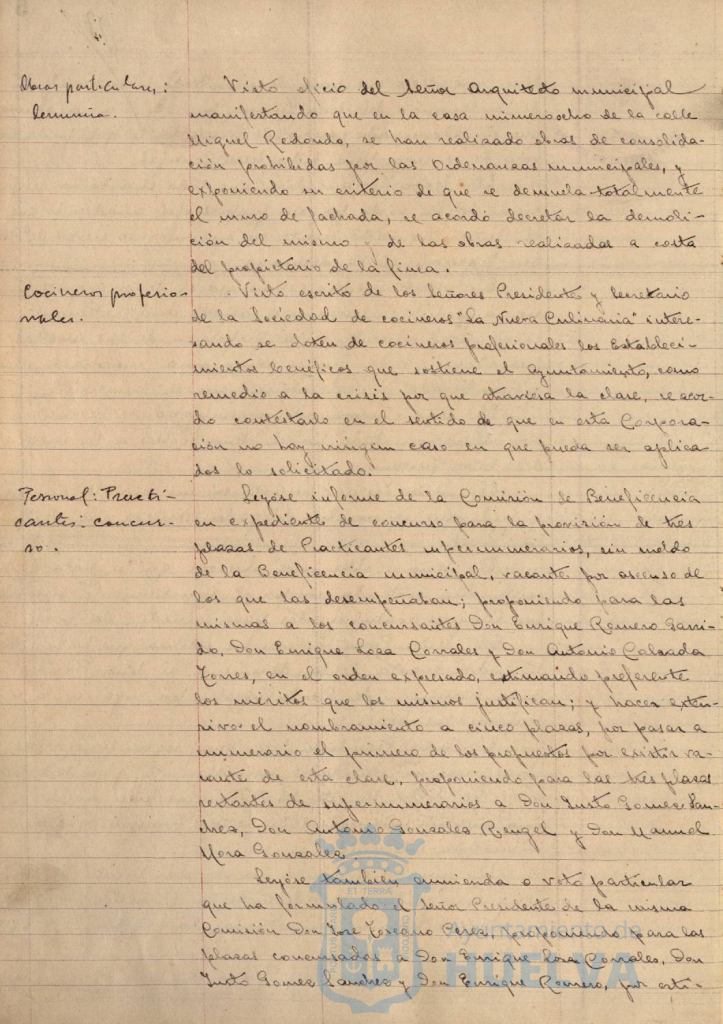 Obras particulares:
denuncia.
Visto oficio del Señor Arquitecto municipal
manifestando que en la casa número ocho de la calle
Miguel Redondo, se han realizado obras de consolida-
ción prohibidas por las Ordenanzas municipales, y
exponiendo su criterio de que se demuela totalmente
el muro de fachada, se acordó decretar la demoli-
ción del mismo y de las obras realizadas a costa
del propietario de la finca.
Cocineros profesio-
nales.
Visto escrito de los Señores Presidente y Secretario
de la Sociedad de cocineros "La Nueva Culinaria" intere-
sando se doten de cocineros profesionales los Estableci-
mientos benéficos que sostiene el Ayuntamiento, como
remedio a la crisis por que atraviesa la clase, se acor-
dó contestarlo en el sentido de que en esta Corpora-
ción no hay ningun caso en que pueda ser aplica-
dos lo solicitado.
Personal: Practi-
cantes: concur-
so.
Leyóse informe de la Comisión de Beneficencia
en expediente de concurso para la provisión de tres
plazas de Practicantes supernumerarios, sin sueldo
de la Beneficencia municipal, vacante por ascenso de
los que las desempeñaban; proponiendo para las
mismas a los concursantes Don Enrique Romero Garri-
do, Don Enrique Lora Corrales y Don Antonio Calzada
Torres, en el orden expresado, estimando preferente
los méritos que los mismos justifican; y hacer exten-
sivo el nombramiento a cinco plazas, por pasar a
numerario el primero de los propuestos por existir va-
cante de esta clase, proponiendo para las tres plazas
restantes de supernumerarios a Don Justo Gomez San-
chez, Don Antonio Gonzalez Rengel y Don Manuel
Mora Gonzalez.
Leyóse también enmienda o voto particular
que ha formulado el Señor Presidente de la misma
Comisión Don José Toscano Perez, proponiendo para las
plazas concursadas a Don Enrique Lora Corrales, Don
Justo Gomez Sanchez y Don Enrique Romero, por esti-
Ayuntamiento de
HUELVA